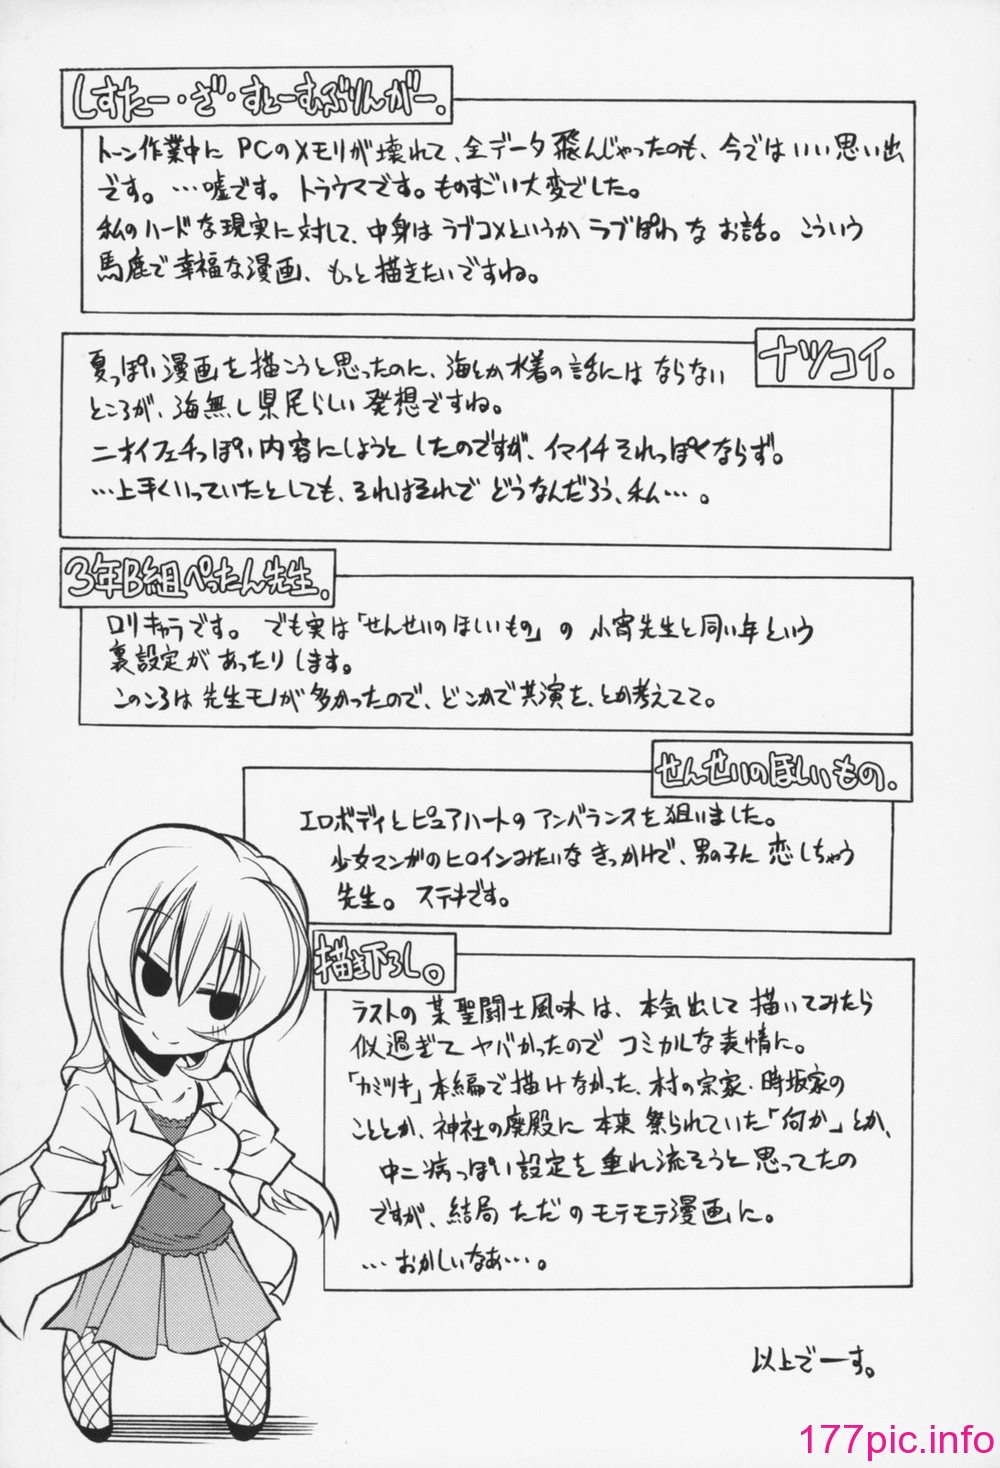 しすたー・ざ・すとーむぶりんがー。
トーン作業中に PCのメモリが壊れて、全データ飛んじゃったのも、今ではいい思い出
です。…嘘です。トラウマです。ものすごい大変でした。
私のハードな現実に対して、中身はラブコメというかラブぽわなお話。こういう
馬鹿で幸福な漫画、もっと描きたいですね。
ナツコイ。
夏っぽい漫画を描こうと思ったのに、海とか水着の話にはならない
ところが、海無し県民らしい発想ですね。
ニオイフェチっぽい内容にしようとしたのですが、イマイチそれっぽくならず。
…上手くいっていたとしても、それはそれでどうなんだろう、私…。
3年B組ぺったん先生。
ロリキャラです。でも実は「せんせいのほしいもの」の小宵先生と同い年という
裏設定があったりします。
このころは先生モノが多かったので、どこかで共演を、とか考えてて。
せんせいのほしいもの。
エロボディとピュアハートのアンバランスを狙いました。
少女マンガのヒロインみたいなきっかけで、男の子に恋しちゃう
先生。ステキです。
描き下ろし。
ラストの某聖闘士風味は、本気出して描いてみたら
似過ぎてヤバかったのでコミカルな表情に。
「カミツキ」本編で描けなかった、村の宗家・時坂家の
こととか、神社の廃殿に本来祭られていた「何か」とか、
中二病っぽい設定を垂れ流そうと思ってたの
ですが、結局ただのモテモテ漫画に。
…おかしいなぁ…。
以上でーす。
177pic.info